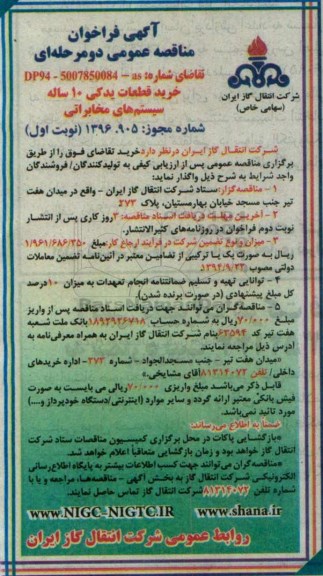 آگهی فراخوان
مناقصه عمومی دومرحله‌ای
تقاضای شماره: DP94 - 5007850084 – as
خرید قطعات یدکی ۱۰ ساله
سیستم‌های مخابراتی
شرکت انتقال گاز ایران
(سهامی خاص)
شماره مجوز: ۱۳۹۶.۹۰۵ (نوبت اول)
شرکت انتقال گاز ایران درنظر دارد خرید تقاضای فوق را از طریق
برگزاری مناقصه عمومی پس از ارزیابی کیفی به تولیدکنندگان/ فروشندگان
واجد شرایط به شرح ذیل واگذار نماید:
۱ – مناقصه‌گزار: ستاد شرکت انتقال گاز ایران – واقع در میدان هفت
تیر جنب مسجد خیابان بهارمستیان، پلاک ۲۷۳
۲ – آخرین مهلت دریافت اسناد مناقصه: ۳ روز کاری پس از انتشار
نوبت دوم فراخوان در روزنامه‌های کثیرالانتشار.
۳ – میزان و نوع تضمین شرکت در فرآیند ارجاع کار: مبلغ ۱/۹۶۱/۶۸۶/۳۵۰
ریال به صورت یک یا ترکیبی از تضامین معتبر در آئین‌نامه تضمین معاملات
دولتی مصوب ۱۳۹۴/۹/۲۲
۴ – توانایی تهیه و تسلیم ضمانتنامه انجام تعهدات به میزان ۱۰ درصد
کل مبلغ پیشنهادی (در صورت برنده شدن).
۵ – مناقصه‌گران می‌توانند جهت دریافت اسناد مناقصه پس از واریز
مبلغ ۷۰/۰۰۰ ریال به شماره حساب ۱۸۹۲۹۴۶۷۱۸ بانک ملت شعبه
هفت تیر کد ۶۳۵۹۴ بنام شرکت انتقال گاز ایران به همراه معرفی‌نامه به
آدرس ذیل مراجعه نمایند.
«میدان هفت تیر – جنب مسجدالجواد – شماره ۲۷۳ – اداره خریدهای
داخلی/ تلفن ۸۱۳۱۴۰۷۲ آقای مشایخی.»
قابل ذکر می‌باشد مبلغ واریزی ۷۰/۰۰۰ ریالی می بایست به صورت
فیش بانکی معتبر ارائه گردد و سایر موارد (اینترنتی/دستگاه خودپرداز و....)
مورد تائید نمی‌باشد.
ضمنا به اطلاع می‌رساند:
*بازگشایی پاکات در محل برگزاری کمیسیون مناقصات ستاد شرکت
انتقال گاز خواهد بود و زمان بازگشایی متعاقباً اعلام خواهد شد.
*مناقصه‌گران می‌توانند جهت کسب اطلاعات بیشتر به پایگاه اطلاع‌رسانی
الکترونیکی شرکت انتقال گاز به بخش آگهی – مناقصه‌ها، مراجعه و یا با
شماره تلفن ۸۱۳۱۴۰۷۲ شرکت انتقال گاز تماس حاصل نمایند.
www.NIGC-NIGTC.IR www.shana.ir
روابط عمومی شرکت انتقال گاز ایران